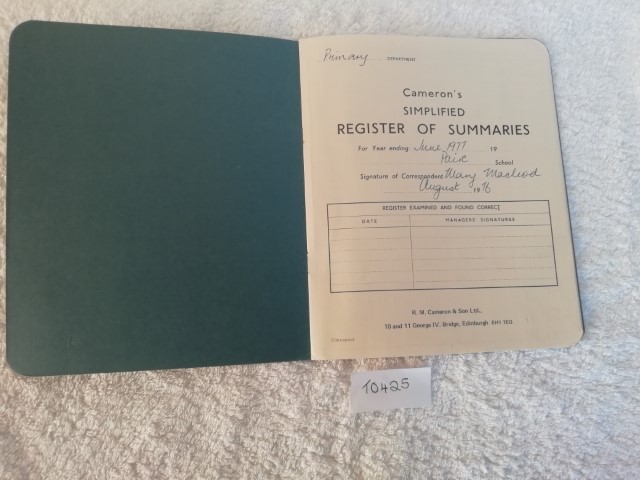 Primary DEPARTMENT
Cameron's
SIMPLIFIED
REGISTER OF SUMMARIES
For Year ending June 1977 19
Pairc School
Signature of Correspondent Mary Macleod
August 1976
REGISTER EXAMINED AND FOUND CORRECT
DATE MANAGERS SIGNATURES
R. M. Cameron & Son Ltd.,
10 and 11 George IV. Bridge, Edinburgh
TO425